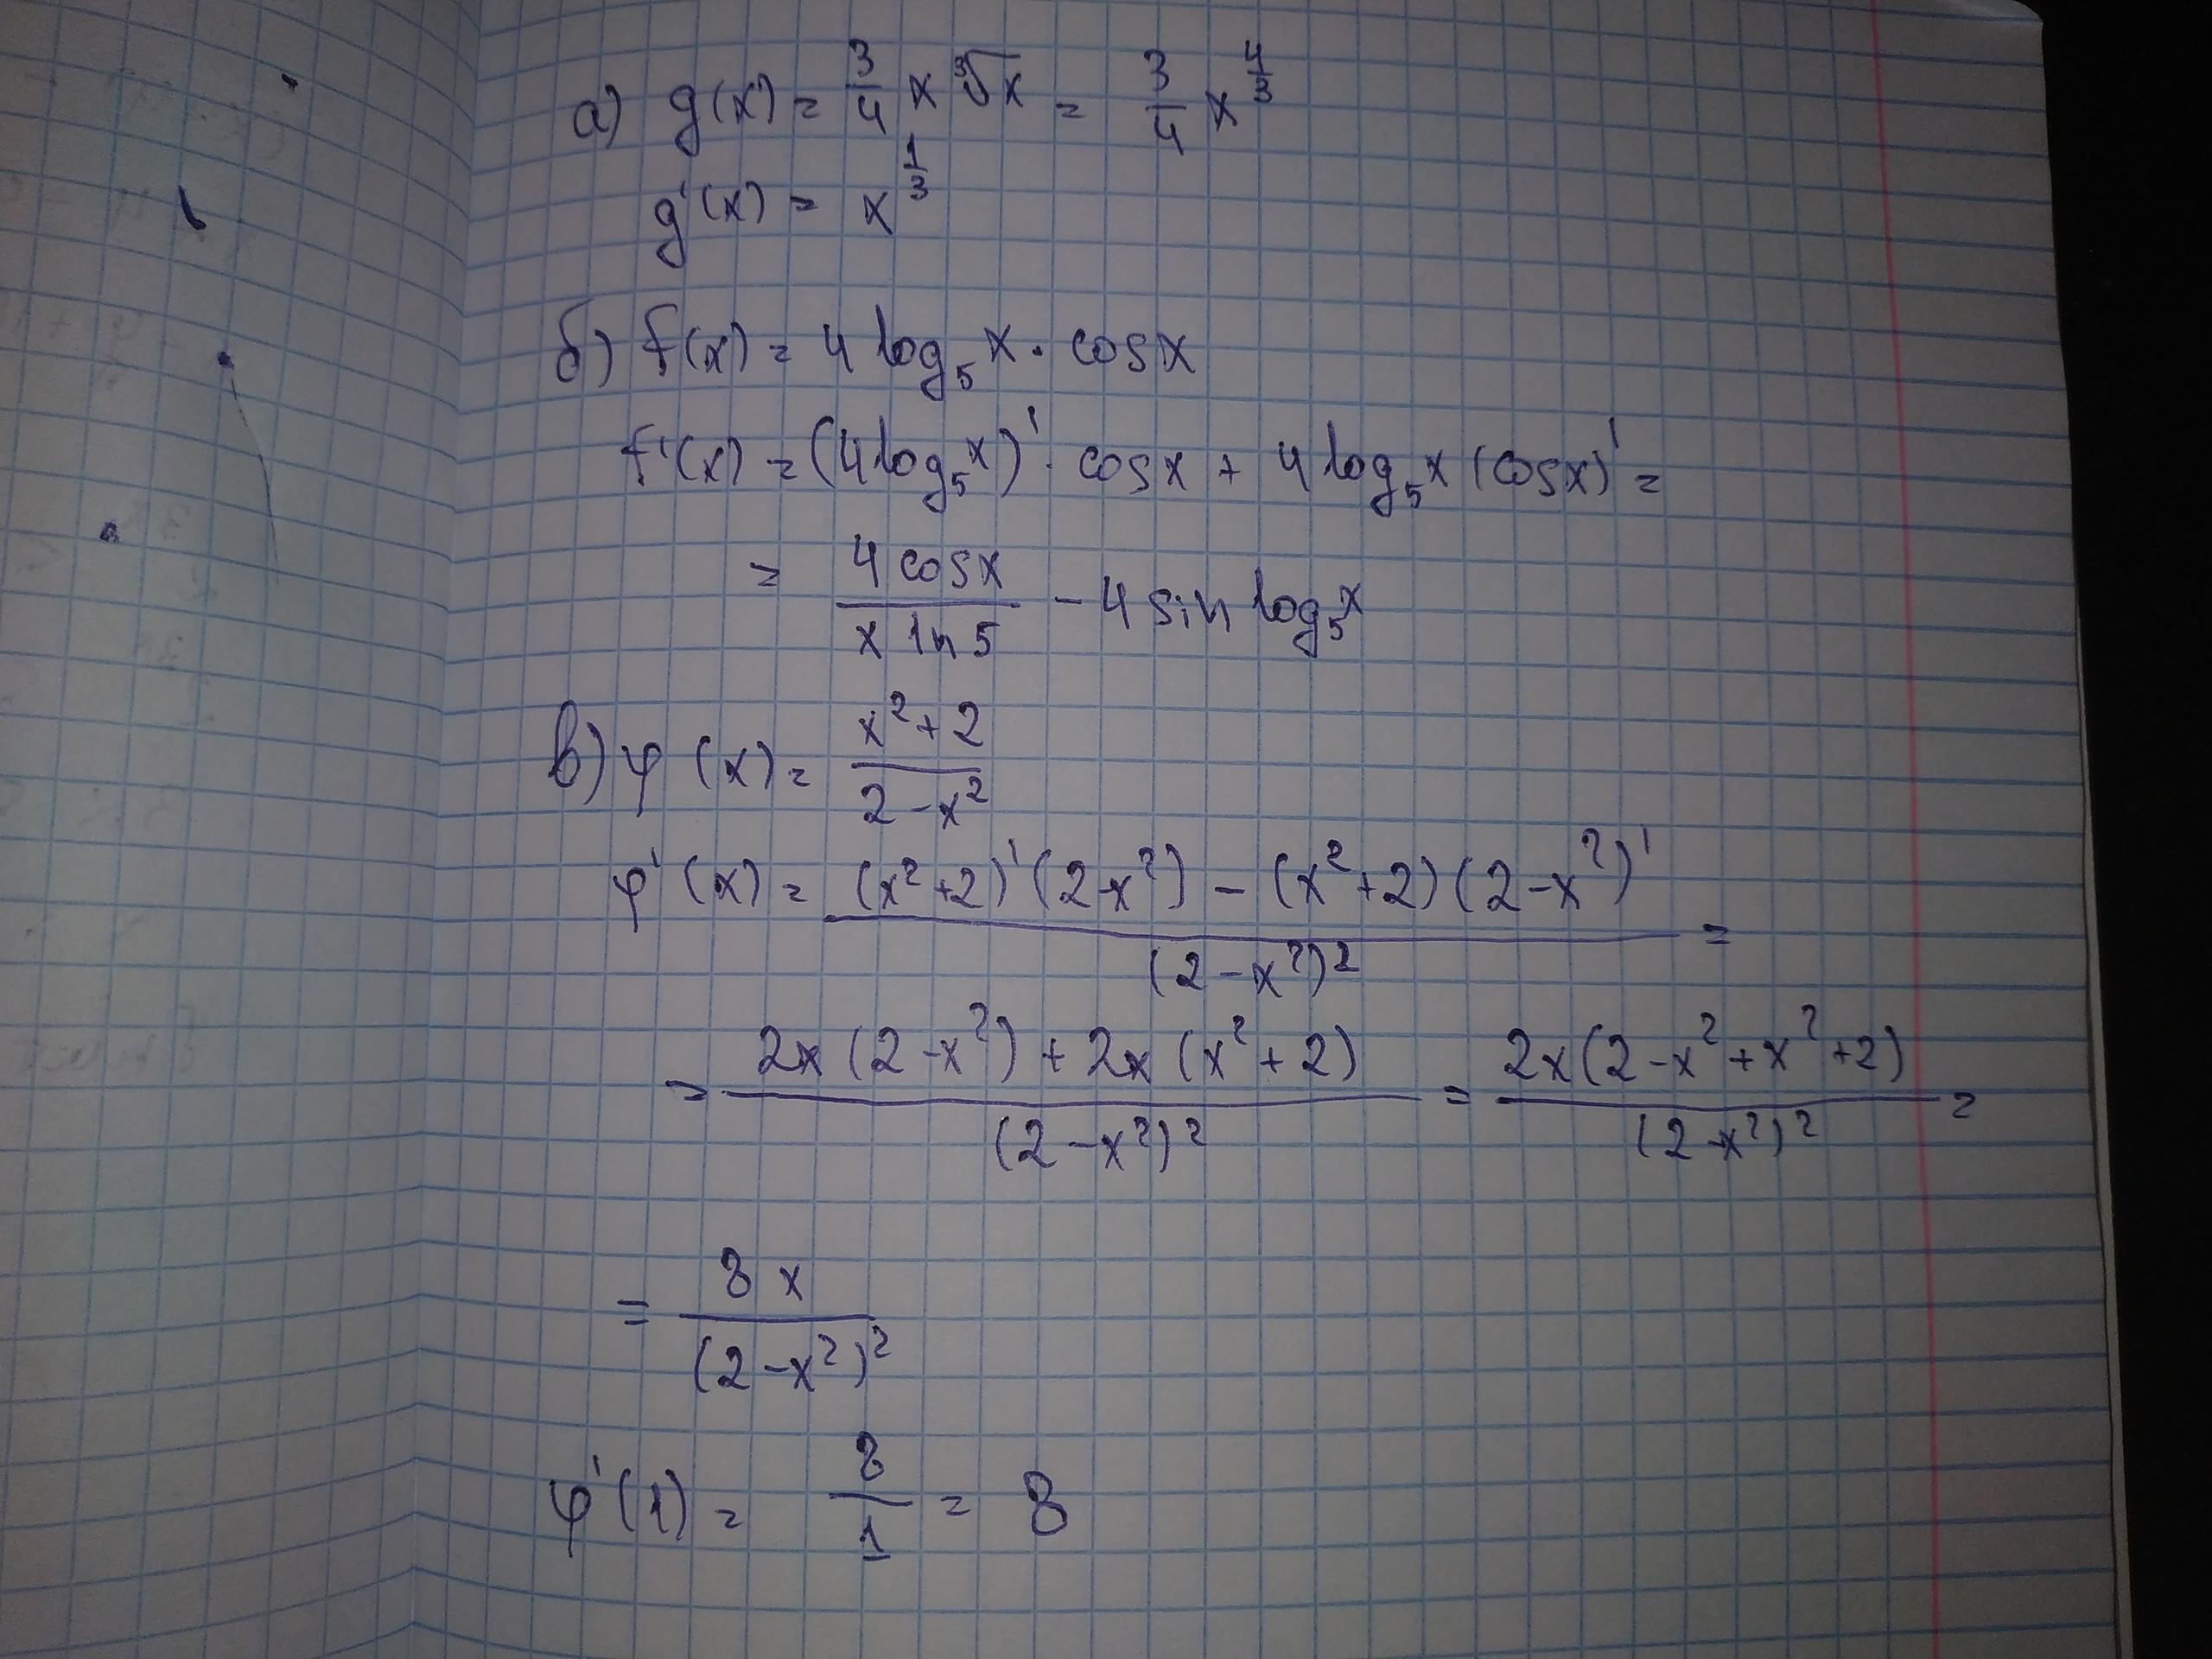 а) g(x) = 3/4 x ∛x = 3/4 x^(4/3)
g'(x) = x^(1/3)
б) f(x) = 4 log₅ x · cos x
f'(x) = (4 log₅ x)' · cos x + 4 log₅ x (cos x)' =
= (4 cos x)/(x ln 5) - 4 sin log₅ x
в) φ(x) = (x² + 2)/(2 - x²)
φ'(x) = ((x² + 2)' (2 - x²) - (x² + 2)(2 - x²)')/(2 - x²)² =
= (2x (2 - x²) + 2x (x² + 2))/(2 - x²)² = (2x (2 - x² + x² + 2))/(2 - x²)² =
= 8x/(2 - x²)²
φ'(1) = 8/1 = 8